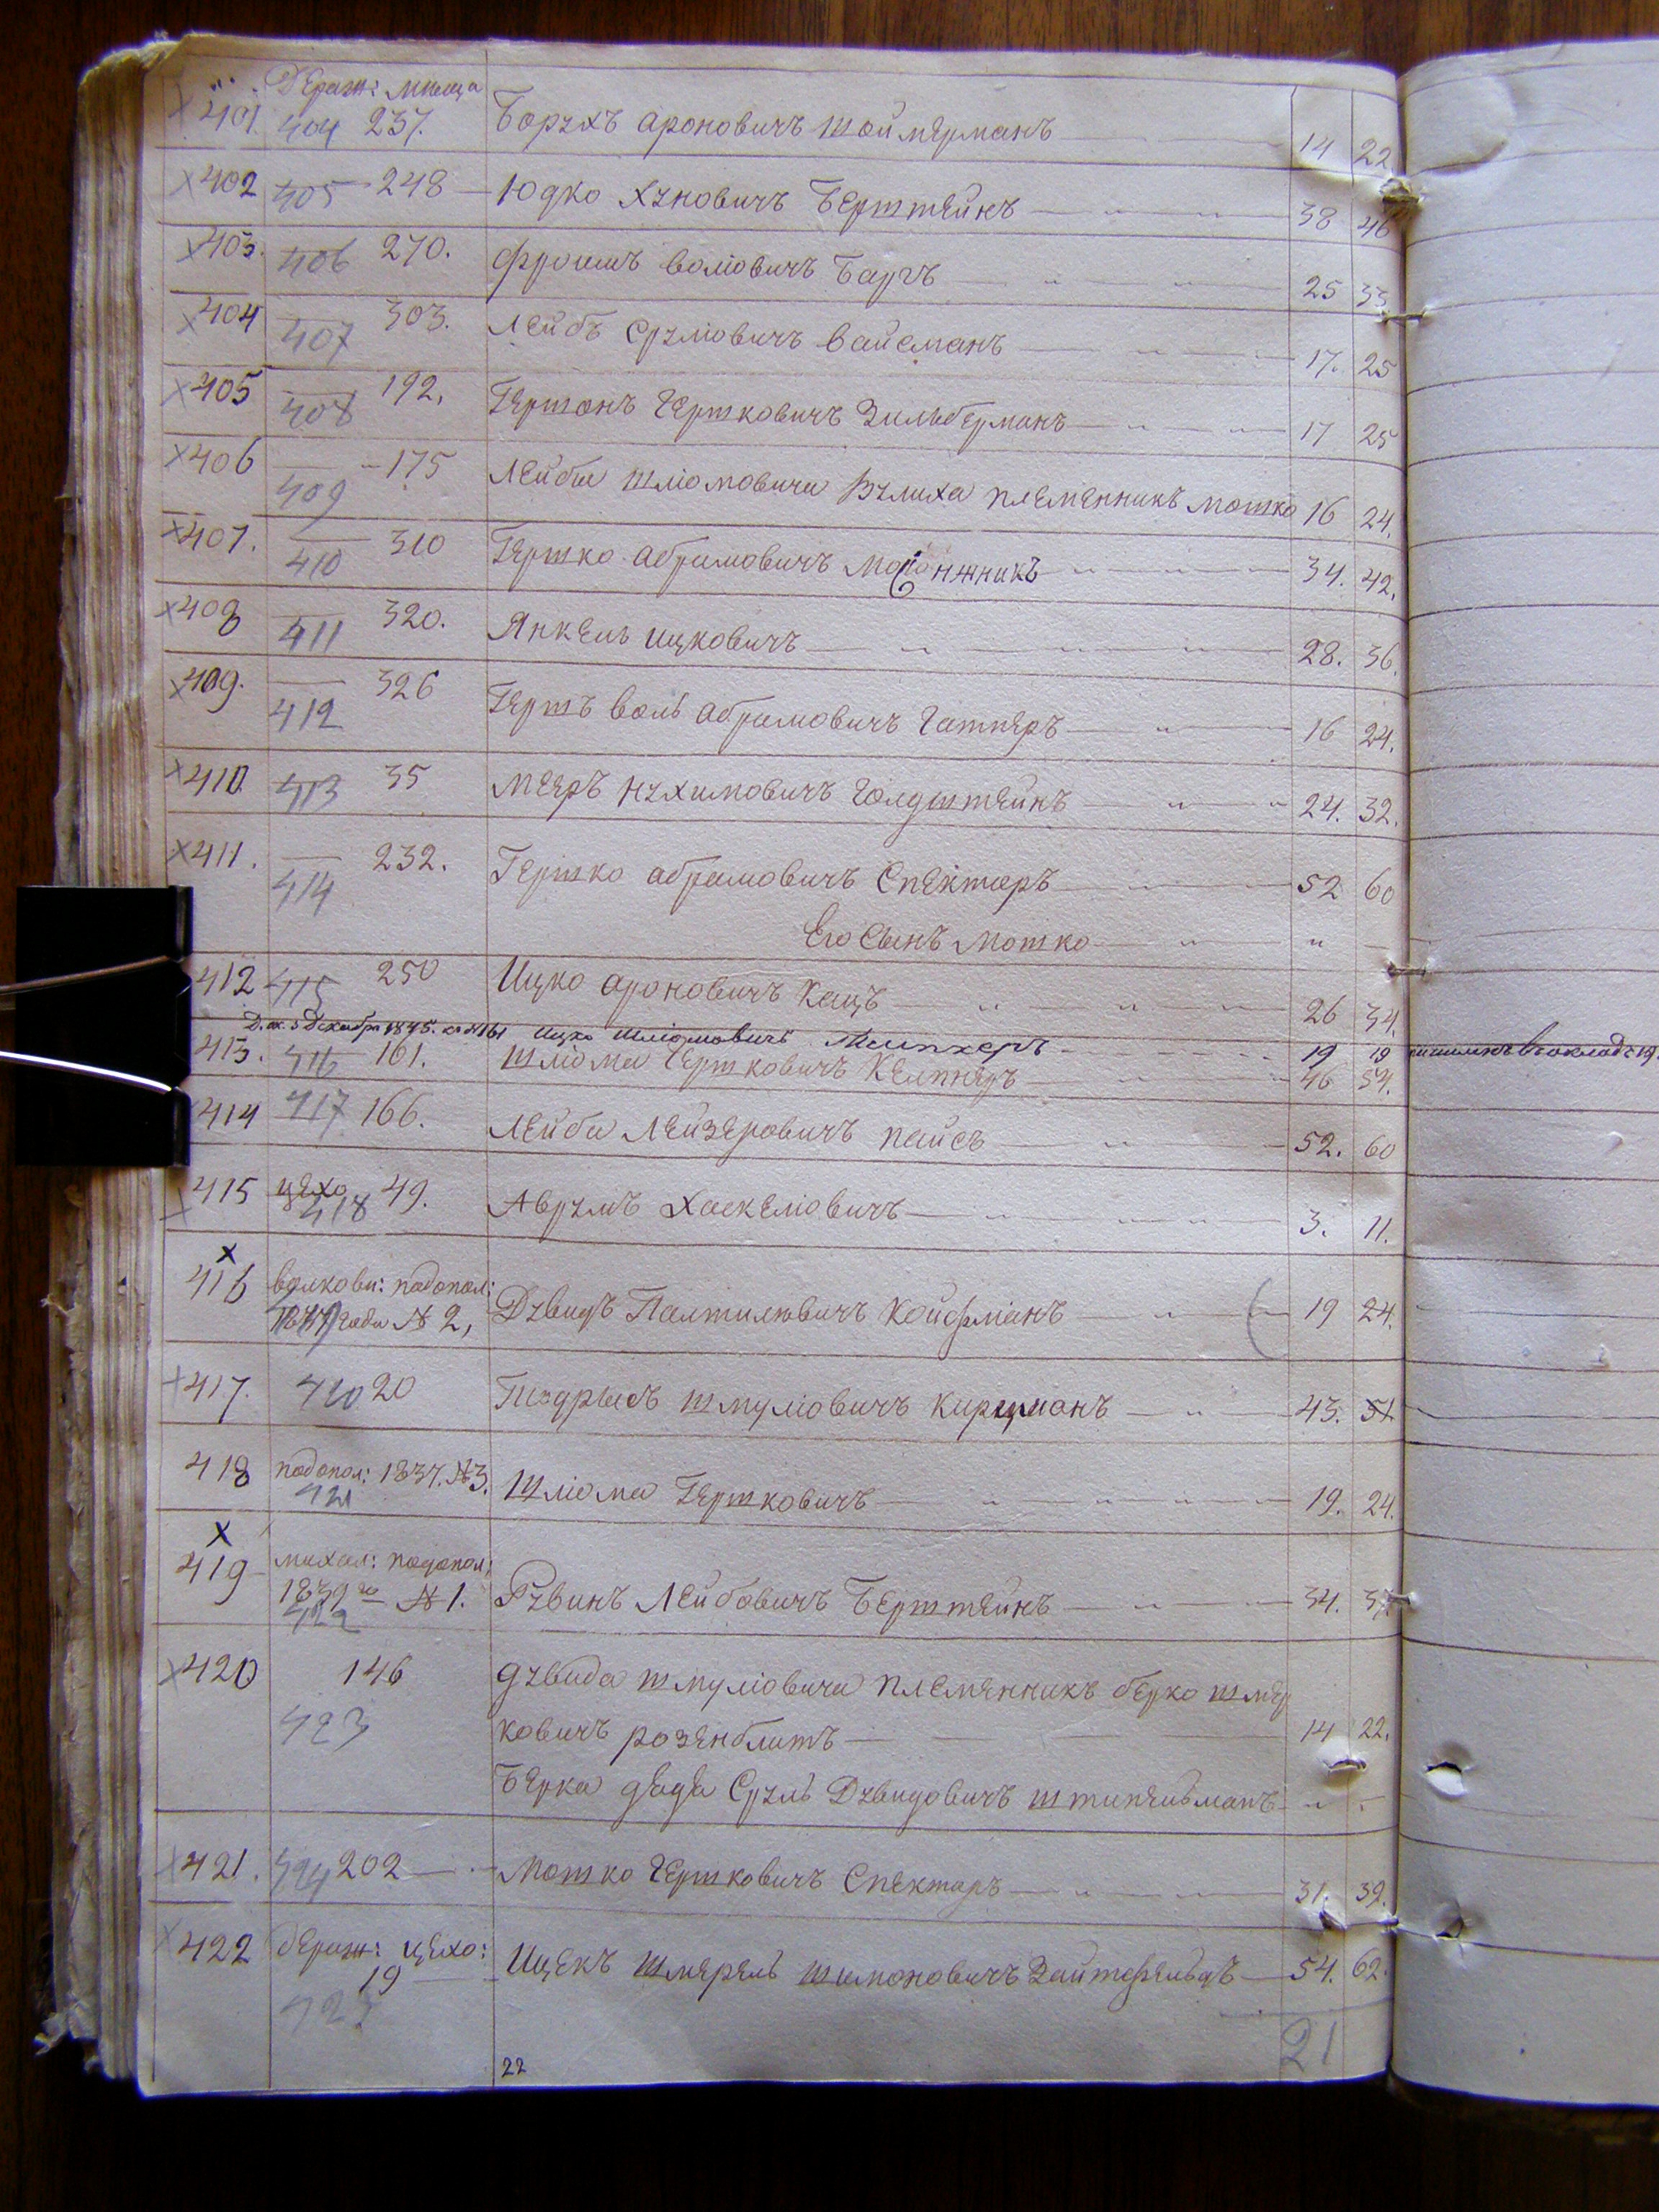 Дераж: мѣща
401. 404 237. Борухъ Ароновичъ Шоймерманъ 14 22
402 405 248 Юдко Хуновичъ Берштейнъ 38 46
403. 406 270. Фроимъ Воліовичъ Баргъ 25 33
404 407 303. Лейбъ Сруліовичъ Вайсманъ 17. 25
405 408 192. Гершонъ Гершковичъ Зильберманъ 17 25
406 409 175 Лейбы Шліомовича племенникъ Мошко 16 24.
407. 410 310 Гершко Абрамовичъ 34. 42.
408 411 320. Янкель Ицковичъ 28. 36.
409. 412 326 Гершъ Воль Абрамовичъ 16 24.
410 413 35 Мееръ Нухимовичъ Голдштейнъ 24. 32.
411. 414 232. Гершко Абрамовичъ Спекторъ 52 60
Его Сынъ Мошко " —
412 415 250 Ицко Ароновичъ Кацъ 26 34.
Декабря 1845. 161 Ицко Шліомовичъ 19 19
413. 416 161. Шліома Гершковичъ Келпнеръ 46 54.
414 417 166. Лейба Лейзеровичъ Пайсъ 52. 60
415 цехо 418 49. Аврумъ Хаскеліовичъ 3. 11.
416 волкови: подопол:
года № 2, Дувидъ Палтиловичъ Койфманъ 19 24.
417. 420 20 Шмуліовичъ Киржманъ 43. 51
418 подопол: 1837. №3. 421 Шліома Гершковичъ 19. 24.
419 михал: подопол:
1839 го № 1. 422 Рувинъ Лейбовичъ Берштейнъ 34. 37
420 146 Дувида Шмуліовича племенникъ Берко Шмер
423 ковичъ Розенблитъ 14 22.
Берка дядя Сруль Дувидовичъ Штипельманъ " -
421. 424 202 Мошко Гершковичъ Спекторъ 31. 39.
422 дераж: цехо: 19 Ицекъ Шмерель Шимоновичъ Зайтефельдъ 54. 62.
425
21
22